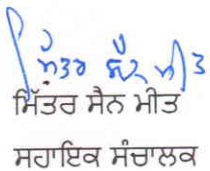 ਮਿੱਤਰ ਸੈਨ ਮੀਤ
ਮਿੱਤਰ ਸੈਨ ਮੀਤ
ਸਹਾਇਕ ਸੰਚਾਲਕ